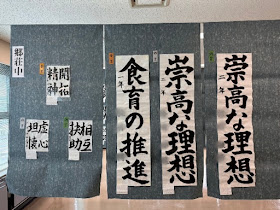 崇高な理想
二年
崇高な理想
食育の推進
一年
開拓
精神
相互
扶助
虚心
坦懐
郷荘中